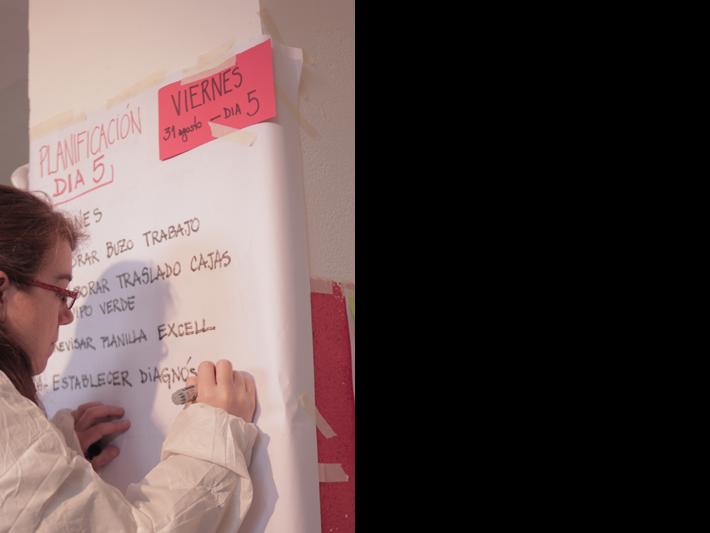 VIERNES
31 agosto — DIA 5
PLANIFICACIÓN
DIA 5
BUZO TRABAJO
TRASLADO CAJAS
VERDE
REVISAR PLANILLA EXCELL
A- ESTABLECER DIAGNÓS